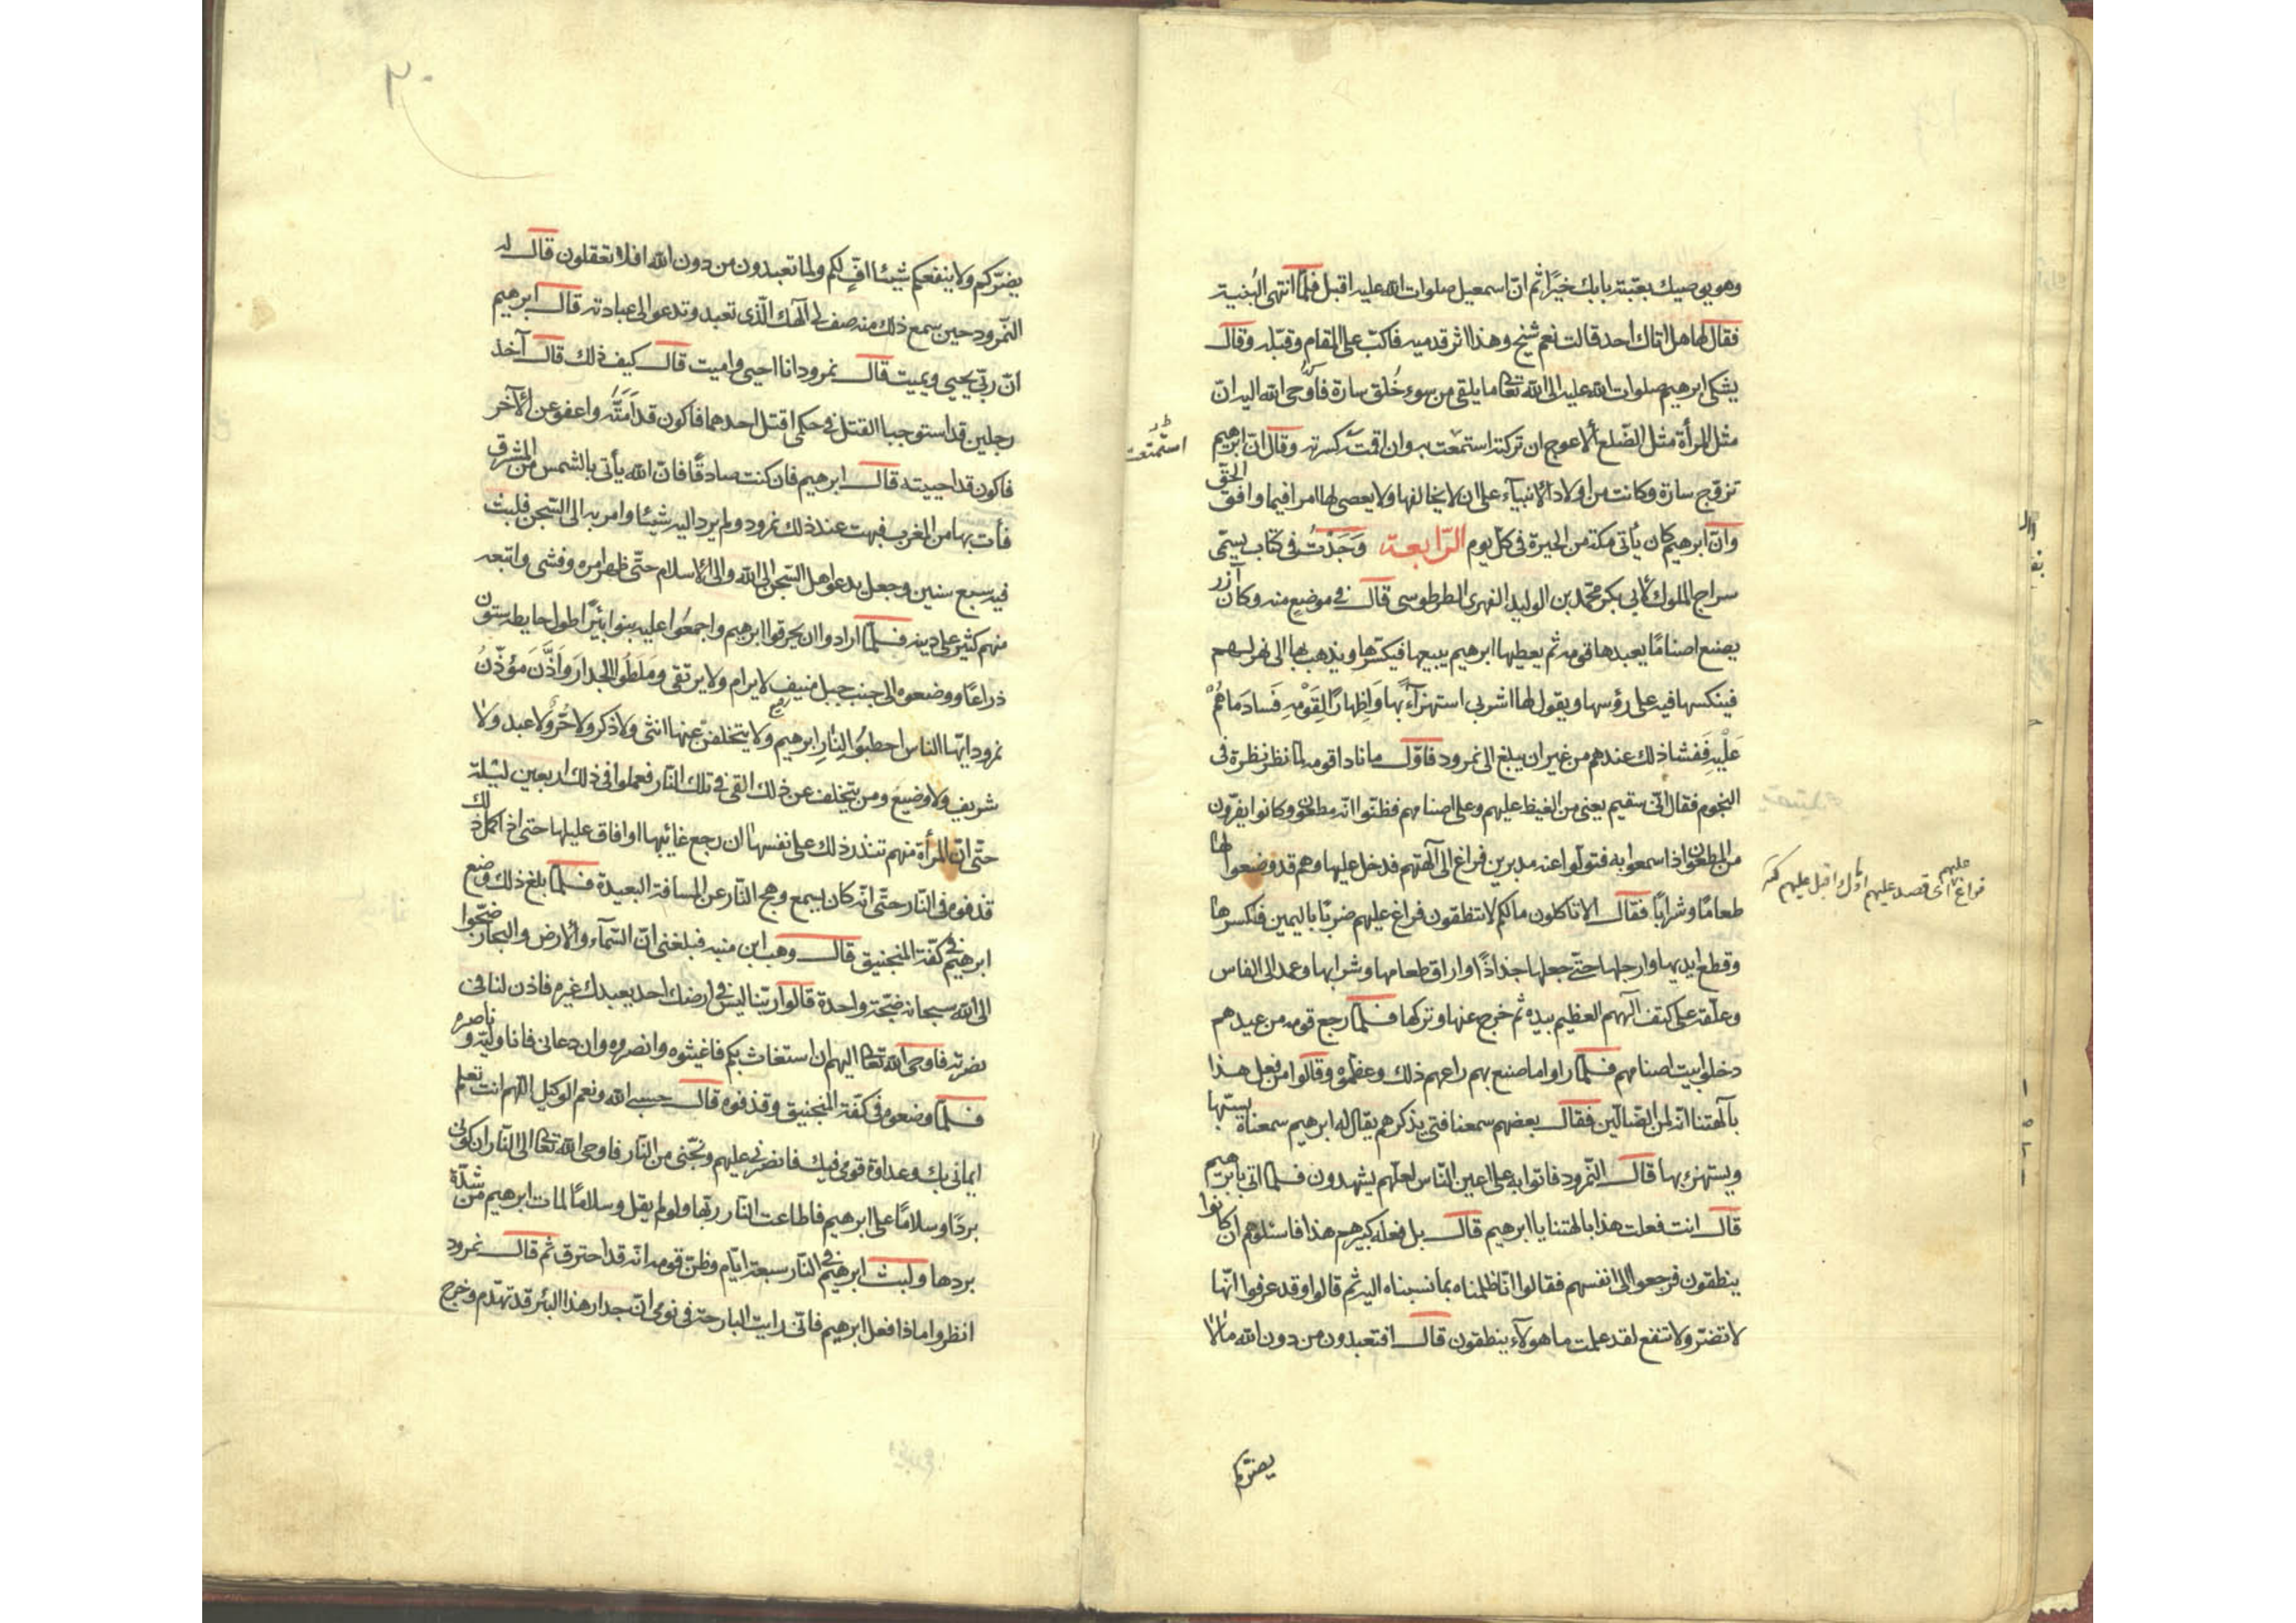 وهو يوصيك بعتبة بابك خيرًا ثم انّ اسمعيل صلوات الله عليه اقبل فلمّا انتهى الثنية
فقال لها هل اتاك احد قالت نعم شيخ وهذا اثر قدميه فاكبّ على المقام وقبّله وقال
يشكى ابرهيم صلوات الله عليه الى الله تعالى ما يلقى من سوء خُلق سارة فاَوحى الله اليه انّ
مثل المرأة مثل الضّلع الاعوج ان تركته استمتعت به وان اقمته كسرته وقال انّ ابرهيم
استمتعت
تزوّج سارة وكانت من اولاد الانبيآء على ان لا يخالفها ولا يعصى لها امرا فيما وافق الحقّ
وانّ ابرهيم كان يأتى مكة من الحيرة فى كلّ يوم الرّابعة وَجَدْتُ فى كتاب يسمّى
سراج الملوك لابى بكر محمّد بن الوليد الفهرى الطرطوسى قال فى موضع منه وكان آزر
يصنع اصنامًا يعبدها قومه ثم يعطيها ابرهيم يبيعها فيكسّرها ويذهب بها الى نهر لهم
فينكسها فيه على رؤسها ويقول لها اشربى استهزآءً بها وَاِظهارًا لِقَوْمِهِ فَسادَ مَا هُمْ
عَلَيْهِ فَفشا ذلك عندهم من غير ان يبلغ الى نمرود فاوّل ما نادا قومه لمّا نظر نظرة فى
النجوم فقال انّى سقيم يعنى من الغيظ عليهم وعلى اصنامهم فظنّوا انّه مطعون وكانوا يفرّون
من المطعون اذا سمعوا به فتولّوا عنه مدبرين فراغ الى آلهتهم فدخل عليها وهم قد وضعوا لها
فراغ عليهم اى قصد عليهم اقبل عليهم
طعامًا وشرابًا فقال الا تاكلون ما لكم لا تنطقون فراغ عليهم ضربًا باليمين فكسرها
وقطع ايديها وارجلها حتّى جعلها جذاذًا واراق طعامها وشرابها وعمد الى الفاس
وعلّقه على كتف آلههم العظيم بيده ثم خرج عنها وتركها فلمّا رجع قومه من عيدهم
دخلوا بيت اصنامهم فلمّا راوا ما صنع بهم راعهم ذلك وعظموه وقالوا من فعل هذا
بآلهتنا انّه لمن الضّالّين فقال بعضهم سمعنا فتى يذكرهم يقال له ابرهيم سمعناه يسبّها
ويستهزئ بها قال النّمرود فاتوا به على اعين النّاس لعلّهم يشهدون فلمّا اتى بابرهيم
قال انت فعلت هذا بالهتنا يا ابرهيم قال بل فعله كبيرهم هذا فاسئلوهم ان كانوا
ينطقون فرجعوا الى انفسهم فقالوا انّا ظلمناه بما نسبناه اليه ثم قالوا وقد عرفوا انّها
لا تضرّ ولا تنفع لقد علمت ما هولآء ينطقون قال افتعبدون من دون الله ما لا
يضرّكم
٢٠
يضرّكم ولا ينفعكم شيئا افٍّ لكم ولما تعبدون من دون الله افلا تعقلون قال له
النّمرود حين سمع ذلك منه صف لى آلهك الّذى تعبد وتدعو الى عبادته قال ابرهيم
انّ ربّى يحيى ويميت قال نمرود انا احيى واميت قال كيف ذلك قال آخذ
رجلين قد استوجبا القتل فى حكمى اقتل احدهما فاكون قد اَمَتُّه واعفو عن الآخر
فاكون قد احييته قال ابرهيم فان كنت صادقًا فانّ الله يأتى بالشمس من المشرق
فأت بها من المغرب فبهت عند ذلك نمرود ولم يرد اليه شيئا وامر به الى السّجن فلبث
فيه سبع سنين وجعل يدعو اهل السّجن الى الله والى الاسلام حتّى ظهر امره وفشى واتبعه
منهم كثير على دينه فلمّا ارادوا ان يحرقوا ابرهيم واجمعُوا عليه بنوا بئيرًا طول حايطه ستون
ذراعًا ووضعوه الى جنب جبل منيف لا يرام ولا يرتقى ومَلَطُوا الجدارَ وَاَذَّنَ مؤذّنُ
نمرود ايّها الناس احطبُوا لِنارِ ابرهيم ولا يتخلفنّ عنها انثى ولا ذكر ولا حُرّ ولا عبد ولا
شريف ولا وضيع ومن يتخلف عن ذلك القى فى تلك النّار فعملوا فى ذلك اربعين ليلة
حتّى انّ المرأة منهم تنذر ذلك على نفسها ان رجع غائبها او افاق عليلها حتى اذ اكمل ذلك
قذفوه فى النّار حتّى انّه كان يسمع وهج النّار عن المسافة البعيدة فلمّا بلغ ذلك وضع
ابرهيم فى كفّة المنجنيق قال وهب ابن منبه فبلغنى انّ السّمآء والارض والبحار ضجّوا
الى الله سبحانه ضجّة واحدة قالوا ربّنا ليس فى ارضك احد يعبدك غيره فاذن لنا فى
نصرته فاوحى الله تعالى اليهم ان استغاث بكم فاغيثوه وانصروه وان دعانى فانا وليّه وناصره
فلمّا وضعوه فى كفّة المنجنيق وقذفوه قال حسبى الله ونعم الوكيل اللّهم انت تعلم
ايمانى بك وعداوة قومى فيك فانصرنى عليهم ونجّنى من النّار فاوحى الله تعالى الى النّار ان كونى
بردًا وسلامًا على ابرهيم فاطاعت النّار ربّها ولو لم يقل وسلامًا لمات ابرهيم من شدّة
بردها ولبث ابرهيم فى النّار سبعة ايّام وظنّ قومه انّه قد احترق ثم قال نمرود
انظروا ماذا فعل ابرهيم فانّى رايت البارحة فى نومى انّ جدار هذا البئر قد تهدّم وخرج